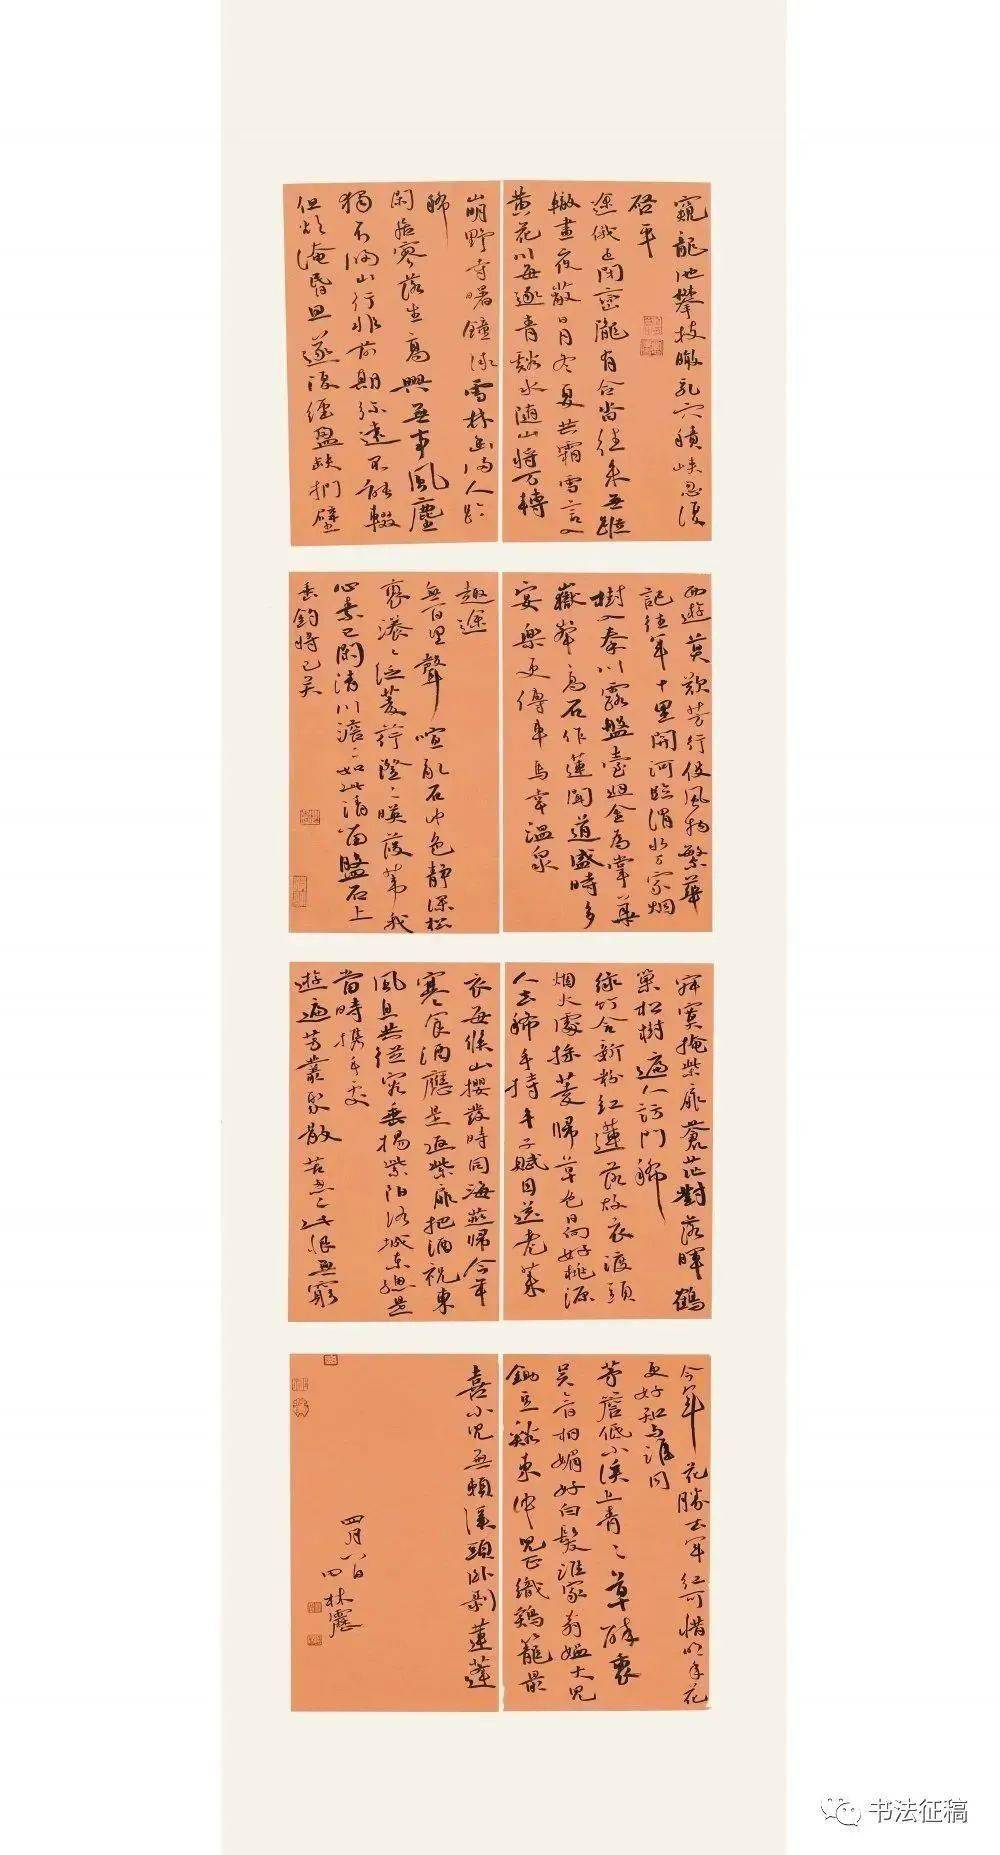 窺龍池攀枝瞰乳穴積峽忽復
啓平
塗俄已閉巒隴有合沓往来無蹤
轍晝夜蔽日月冬夏共霜雪言入
黄花川每逐青谿水随山将万轉
野寺曙鐘微雪林幽
稀
閑居寥落生高興無事風塵
獨不歸山行非前期弥遠不能輟
但欲淹昏旦遂復經盈缺捫壁
西遊莫歎行役風物繁華
記往年十里關河臨渭水万家烟
樹入秦川露盤臺迥金為掌華
嶽峯高石作蓮聞道盛時多
宴樂更傳車馬幸温泉
趣途
無百里聲喧亂石中色靜深松
裏漾〻泛菱荇澄〻暎葭葦我
心素已閑清川澹〻如此請留盤石上
垂釣将已矣
寂寞掩柴扉蒼茫對落暉鶴
巢松樹遍人訪門稀
緑竹含新粉紅蓮落故衣渡頭
烟火處採菱歸草色日向好桃源
人去稀手持平子賦目送老萊
衣每候山櫻發時同海燕歸今年
寒食酒應是返柴扉把酒祝東
風且共從容垂楊紫陌洛城東總是
當時携手處
遊遍芳叢聚散苦此恨無窮
今年花勝去年紅可惜明年花
更好知与誰同
茅簷低小溪上青〻草醉裏
吴音相媚好白髮誰家翁媪大兒
鋤豆谿東中兒正織鷄籠最
喜小兒無賴溪頭卧剥蓮蓬
四月八日
林
书法征稿